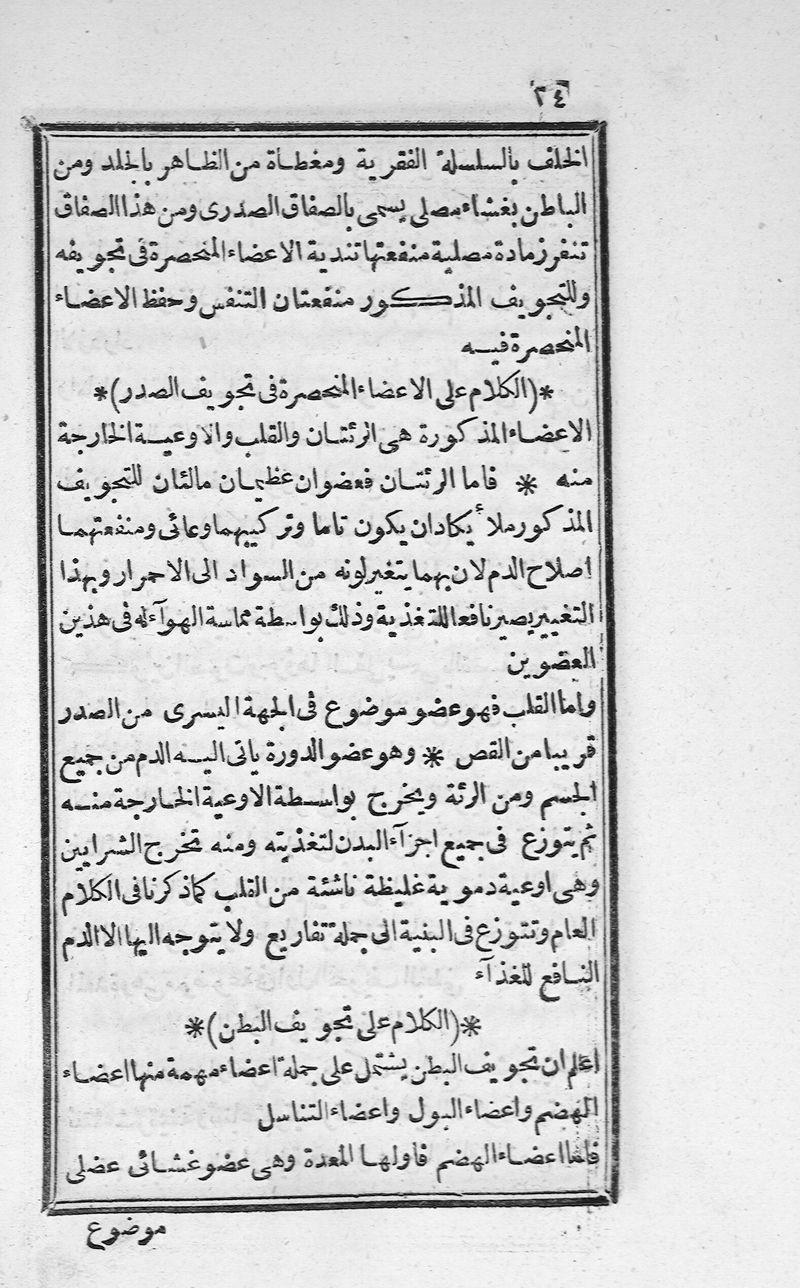 ٢٤
الخلف بالسلسلة الفقرية ومغطاة من الظاهر بالجلد ومن
الباطن بغشاء مصلى يسمى بالصفاق الصدرى ومن هذا الصفاق
تنفرز مادة مصلية منفعتها تندية الاعضاء المنحصرة فى تجويفه
وللتجويف المذكور منفعتان التنفس وحفظ الاعضاء
المنحصرة فيه
*(الكلام على الاعضاء المنحصرة فى تجويف الصدر)*
الاعضاء المذكورة هى الرئتان والقلب والاوعية الخارجة
منه * فاما الرئتان فعضوان عظيمان مالئان للتجويف
المذكور ملأ يكاد ان يكون تاما وتركيبهما وعائى ومنفعتهما
اصلاح الدم لان بهما يتغير لونه من السواد الى الاحمرار وبهذا
التغيير يصير نافعا للتغذية وذلك بواسطة مماسة الهوآء له فى هذين
العضوين
واما القلب فهو عضو موضوع فى الجهة اليسرى من الصدر
قريبا من القص * وهو عضو الدورة ياتى اليه الدم من جميع
الجسم ومن الرئة ويخرج بواسطة الاوعية الخارجة منه
ثم يتوزع فى جميع اجزآء البدن لتغذيته ومنه تخرج الشرايين
وهى اوعية دموية غليظة ناشئة من القلب كما ذكرنا فى الكلام
العام وتتوزع فى البنية الى جملة تفاريع ولا يتوجه اليها الا الدم
النافع للغذآء
*(الكلام على تجويف البطن)*
اعلم ان تجويف البطن يشتمل على جملة اعضاء مهمة منها اعضاء
الهضم واعضاء البول واعضاء التناسل
فاما اعضاء الهضم فاولها المعدة وهى عضو غشائى عضلى
موضوع